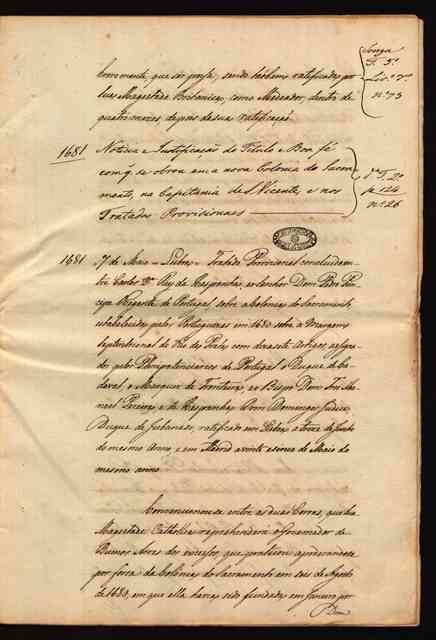 brevemente, que ser possa, sendo tambem ratificados por
sua Magestade Britanica, como Mediador, dentro de
quatro mezes depois da sua ratificação.
Souza
T. 5.º
Liv.º 7.º
n.º 73
1681 Noticia e Justificação do Titulo e Boa fé
com q. se obrou em a nova Colonia do Sacra-
mento, na Capitania de S. Vicente, e nos
Tratados Provisionaes
d.º T. 2.º
p. 124
n.º 26
1681 7 de Maio = Lisboa = Tratado Provisional concluido en-
tre Carlos 2.º Rey de Hespanha, e o Senhor Dom Pedro Prin-
cipe Regente de Portugal sobre a Colonia do Sacramento
estabelecida pelos Portuguezes em 1680 sobre a Margem
Septentrional do Rio da Prata, com dezasete Artigos, assigna-
do pelos Plenipotenciarios de Portugal o Duque de Ca-
daval, o Marquez de Fronteira, e o Bispo Dom Frei Ma-
noel Pereira, e de Hespanha, Dom Domingos Judice
Duque de Jubenaso, ratificado em Lisboa a treze de Junho
do mesmo Anno, e em Madrid a vinte e cinco de Maio do
mesmo anno
Convencionou-se entre as duas Coroas, que Sua
Magestade Catholica reprehenderia o Governador de
Buenos Aires dos excessos, que praticou apoderando-se
por força da Colonia do Sacramento em seis de Agosto
de 1680, em que ella havia sido fundada em Janeiro por
Dom